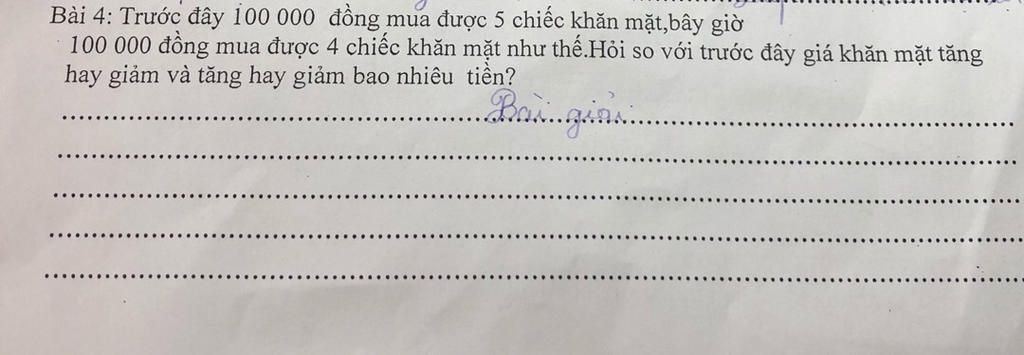 Bài 4: Trước đây 100 000 đồng mua được 5 chiếc khăn mặt,bây giờ
100 000 đồng mua được 4 chiếc khăn mặt như thế.Hỏi so với trước đây giá khăn mặt tăng
hay giảm và tăng hay giảm bao nhiêu tiền?
Bài giải